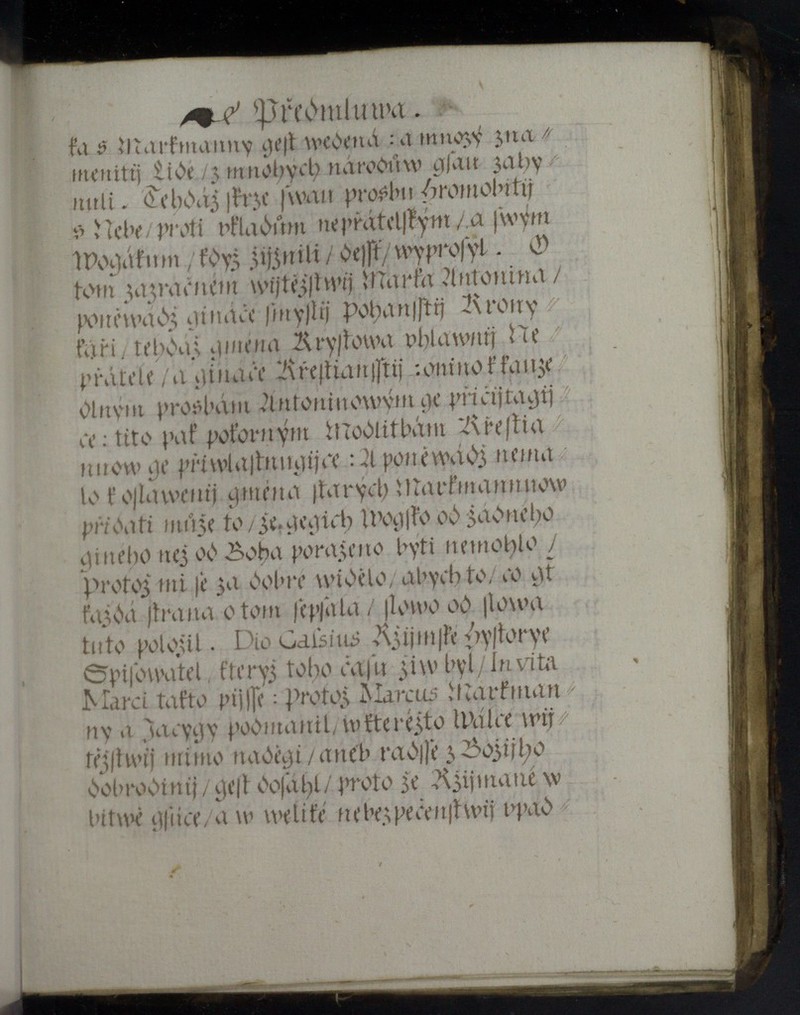 Předmluwa.
ka s Markmanny gest wedena : a mnozý zna⸗
menitij Lidé / z mnohých národůw gsau zahy⸗
nuli. Tehdáž skrze swau prosbu Hromobitij
s Nebe / proti vkladům nepřátelským / a swým
Wogákum / když žijznili / dessť / wyprosyl. O
tom zazračném wijtězstwij Marka Antonina /
poněwadž gináče smyslij Pohansstij Krony⸗
káři / tehdáž gména Krystowa vhlawnij Ne⸗
přátele / a gináče Křestiansstij : onino k kauze⸗
dlným prosbám Antoninowým ge přičijtagij⸗
ce : tito pak pokorným Modlitbám Křestia⸗
nuow ge přiwlastnugijce : A poněwádž nema⸗
lo k oslawenij gména starých Markmannuow
přidati může to / že gegich Wogsko od žádného
giného než od Boha poraženo býti nemohlo /
Protož mi se za dobré widělo / abych to / co gt
každá strana o tom sepsala / slowo od slowa
tuto položil. Dio Cassius Ržijmské Hystorye
Spisowatel, kterýž toho času žiw byl / In vita
Marci takto pijsse : Protož Marcus Markman⸗
ny a Jacygy podmanil / w kteréžto Wálce wij⸗
tězstwij mimo naděgi / aneb radssě z Božijho
dobrodinij / gest dosáhl / proto že Ržijmané w
bitwě gsúce / a w weliké nebezpečenstwij vpad⸗